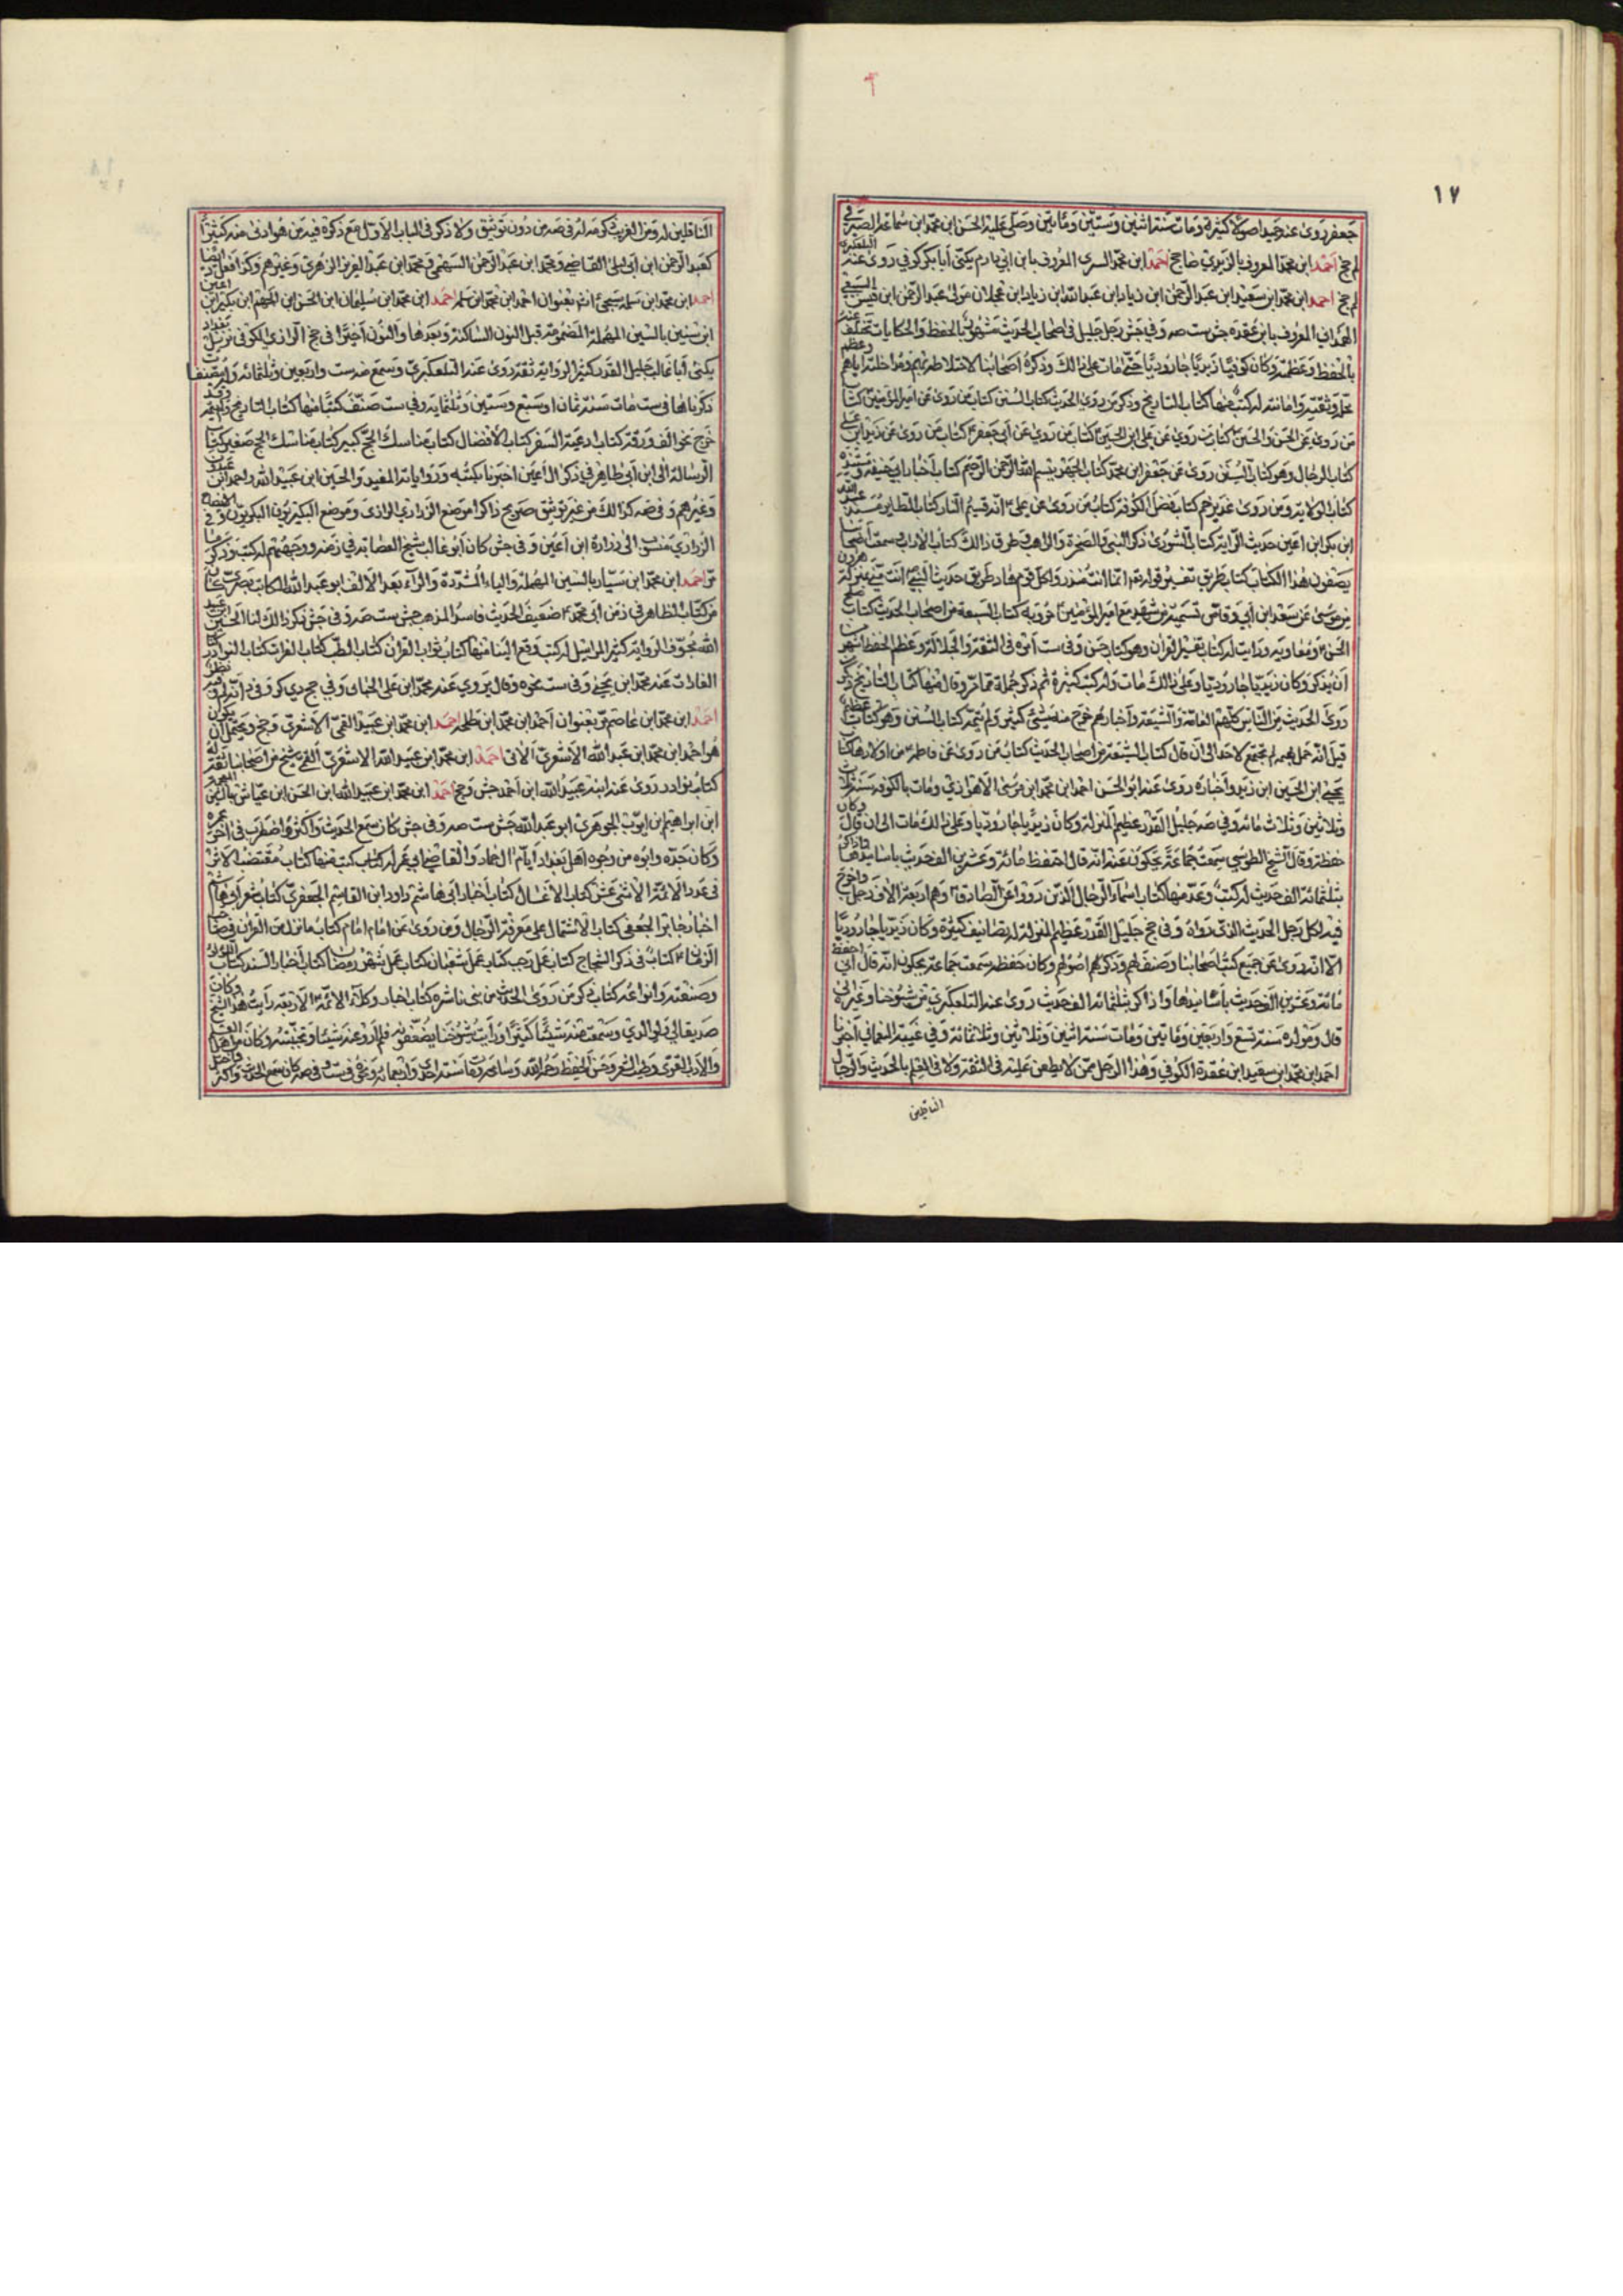 ١٧
جعفر روى عنه حميد اصولا كثيرة ومات سنة اثنين وستين ومأتين وصلى عليه الحسن ابن محمد ابن سماعة الصيرفي
لم جخ احمد ابن محمد المعروف بالزيدي خاجخ احمد ابن محمد السري المعروف بابن ابي دارم يكنى أبا بكر كوفي روى عنه التلعكبري
لم جخ احمد ابن محمد ابن سعيد ابن عبد الرحمن ابن زياد ابن عبد الله ابن زياد ابن عجلان مولى عبد الرحمن ابن قيس السبيعي
الهمداني المعروف بابن عقدة جش ست صه وفي جش رجل جليل في اصحاب الحديث مشهور بالحفظ والحكايات تختلف عنه
بالحفظ وعظمه وكان كوفيا زيديا جاروديا حتى مات على ذالك وذكره اصحابنا لاختلاطه بهم ومداخلته اياهم وعظم
محله وثقته وامانته له كتب منها كتاب التاريخ وذكر من روى الحديث كتاب السنن كتاب من روى عن امير المؤمنين كتاب
من روى عن الحسن والحسين كتاب من روى عن علي ابن الحسين كتاب من روى عن أبي جعفر كتاب من روى عن زيد ابن علي
كتاب الرجال وهو كتاب من روى عن جعفر ابن محمد كتاب الجهر ببسم الله الرحمن الرحيم كتاب أخبار ابي حنيفة ومسنده
كتاب الولاية ومن روى غدير خم كتاب فضل الكوفة كتاب من روى عن علي انه قسيم النار كتاب الطاير مسند عبد الله
ابن بكير ابن اعين حديث الراية كتاب الشورى ذكر النبي والصخرة والراهب وطرق ذالك كتاب الاداب وسمعت اصحابنا
يصفون هذا الكتاب كتاب طريق تفسير قوله تعالى انما انت منذر ولكل قوم هاد طريق حديث النبي انت مني بمنزلة هرون
من موسى عن سعد ابن أبي وقاص تسمية من شهد مع امير المؤمنين حروبه كتاب الشيعة من اصحاب الحديث كتاب صلح
الحسن ومعاوية ورايت له كتاب تفسير القران وهو كتاب حسن وفي ست امره في الثقة والجلالة وعظم الحفظ اشهر من
أن يذكر وكان زيديا جاروديا وعلى ذالك مات وله كتب كثيرة ثم ذكر جملة مما مر وقال منها كتاب التاريخ ذكر من
روى الحديث من الناس كلهم العامة والشيعة وأخبارهم خرج منه شيئ كثير ولم يتمه كتاب السنن وهو كتاب عظيم
قيل انه حمل بهيمة لم يجتمع لاحد الى ان قال كتاب الشيعة من اصحاب الحديث كتاب من روى عن فاطمة من اولادها كتاب
يحيى ابن الحسين ابن زيد وأخباره روى عنه ابو الحسن احمد ابن محمد ابن موسى الأهوازي ومات بالكوفة سنة ثلاث
وثلاثين وثلاث مائة وفي صه جليل القدر عظيم المنزلة وكان زيديا جاروديا وعلى ذالك مات الى ان قال وكان
حفظة وقال الشيخ الطوسي سمعت جماعة يحكون عنه انه قال احفظ مائة وعشرين الف حديث باسانيدها واذاكر
بثلثمائة الف حديث له كتب وعد منها كتاب اسماء الرجال الذين رووا عن الصادق وهم اربعة الاف رجل واخرج
فيه لكل رجل الحديث الذي رواه وفي جخ جليل القدر عظيم المنزلة له تصانيف كثيرة وكان زيديا جاروديا
الا انه روى عن جميع كتب اصحابنا وصنف لهم وذكر اصولهم وكان حفظة سمعت جماعة يحكون انه قال اني احفظ
مائة وعشرين الف حديث باسانيدها واذاكر بثلثمائة الف حديث روى عنه التلعكبري من شيوخنا وغيره
قال ومولده سنة تسع واربعين ومأتين ومات سنة اثنين وثلاثين وثلاثمائة وفي غيبة النعماني أخبرنا
احمد ابن محمد ابن سعيد ابن عقدة الكوفي وهذا الرجل ممن لا يطعن عليه في الثقة ولا في العلم بالحديث والرجال
الناقلين
الناقلين له ومن الغريب ذكره في صه من دون توثيق ولا ذكر في الباب الاول مع ذكره فيه من هو ادنى منه كثيرا
كعبد الرحمن ابن أبي ليلى القاضي ومحمد ابن عبد الرحمن السهمي ومحمد ابن عبد العزيز الزهري وغيرهم وكذا فعل د ايضا
احمد ابن محمد ابن سلمة سيجئ انه بعنوان احمد ابن محمد ابن سلمة احمد ابن محمد ابن سليمان ابن الحسن ابن الجهم ابن بكير ابن اعين
ابن سنسن بالسين المهملة المضمومة قبل النون الساكنة وبعدها والنون أخيرا في جخ الرازي الكوفي نزيل بغداد
يكنى أبا غالب جليل القدر كثير الرواية ثقة روى عنه التلعكبري وسمع منه ست واربعين وثلثمائة وله مصنفات
ذكرناها في ست مات سنة ثمان او سبع وستين وثلثماية وفي ست صنف كتبا منها كتاب التاريخ ولم يتمه وقد
خرج نحو الف ورقة كتاب ادعية السفر كتاب الافضال كتاب مناسك الحج كبير كتاب مناسك الحج صغير كتاب
الرسالة الى ابن أبي طاهر في ذكر ال أعين اخبرنا بكتبه ورواياته المفيد والحسين ابن عبيد الله واحمد ابن عبدون
وغيرهم وفي صه كذالك من غير توثيق صريح ذاكرا موضع الزراري الرازي وموضع البكيريون البكريون وفي ايضاح
الزراري منسوب الى زرارة ابن أعين وفي جش كان أبو غالب شيخ العصابة في زمنه ووجههم له كتب وذكر ما
مر احمد ابن محمد ابن سيار بالسين المهملة والياء المشددة والراء بعد الالف ابو عبد الله الكاتب بصري كان
من كتاب الطاهر في زمن أبي محمد ضعيف الحديث فاسد المذهب جش ست صه وفي جش ذكر ذالك لنا الحسين ابن عبيد
الله مجفو الرواية كثير المراسيل له كتب وقع الينا منها كتاب ثواب القران كتاب الطب كتاب القراءات كتاب النوادر
احمد ابن محمد ابن عاصم مر بعنوان احمد ابن محمد ابن طلحة احمد ابن محمد ابن عبيد القمي الاشعري وجخ ويحتمل ان يكون
هو احمد ابن محمد ابن عبد الله الاشعري الاتي احمد ابن محمد ابن عبيد الله الاشعري القمي شيخ من اصحابنا ثقة له
كتاب نوادر روى عنه ابنه عبيد الله ابن أحمد جش وجخ احمد ابن محمد ابن عبيد الله ابن الحسن ابن عياش
ابن ابراهيم ابن ايوب الجوهري ابو عبد الله جش ست صه وفي جش كان سمع الحديث واكثر واضطرب في اخر عمره
وكان جده وابوه من وجوه اهل بغداد أيام ال حماد والقاضي ابي عمر له كتاب كتب منها كتاب مقتضب الاثر
في عدد الائمة الاثني عشر كتاب الاغسال كتاب أخبار ابي هاشم داود ابن القاسم الجعفري كتاب شعر أبي هاشم
اخبار جابر الجعفي كتاب الاشتمال على معرفة الرجال ومن روى عن امام امام كتاب ما نزل من القران في صاحب
الزمان كتاب في ذكر الشجاج كتاب عمل رجب كتاب عمل شعبان كتاب عمل شهر رمضان كتاب أخبار السيد كتاب اللؤلؤ
وصنعته وأنواعه كتاب ذكر من روى الحديث من بني ناشرة كتاب اخبار وكلاء الائمة الاربعة رايت هذا الشيخ وكان
صديقا لي ولوالدي وسمعت منه شيئا كثيرا ورأيت شيوخنا يضعفونه فلم أرو عنه شيئا وتجنبته وكان من اهل العلم
والادب القوي وطيب الشعر وحسن الخط رحمه الله وسامحه ومات سنة احدى واربعمائة ونحوه في ست وفي صه كان سمع الحديث واكثر